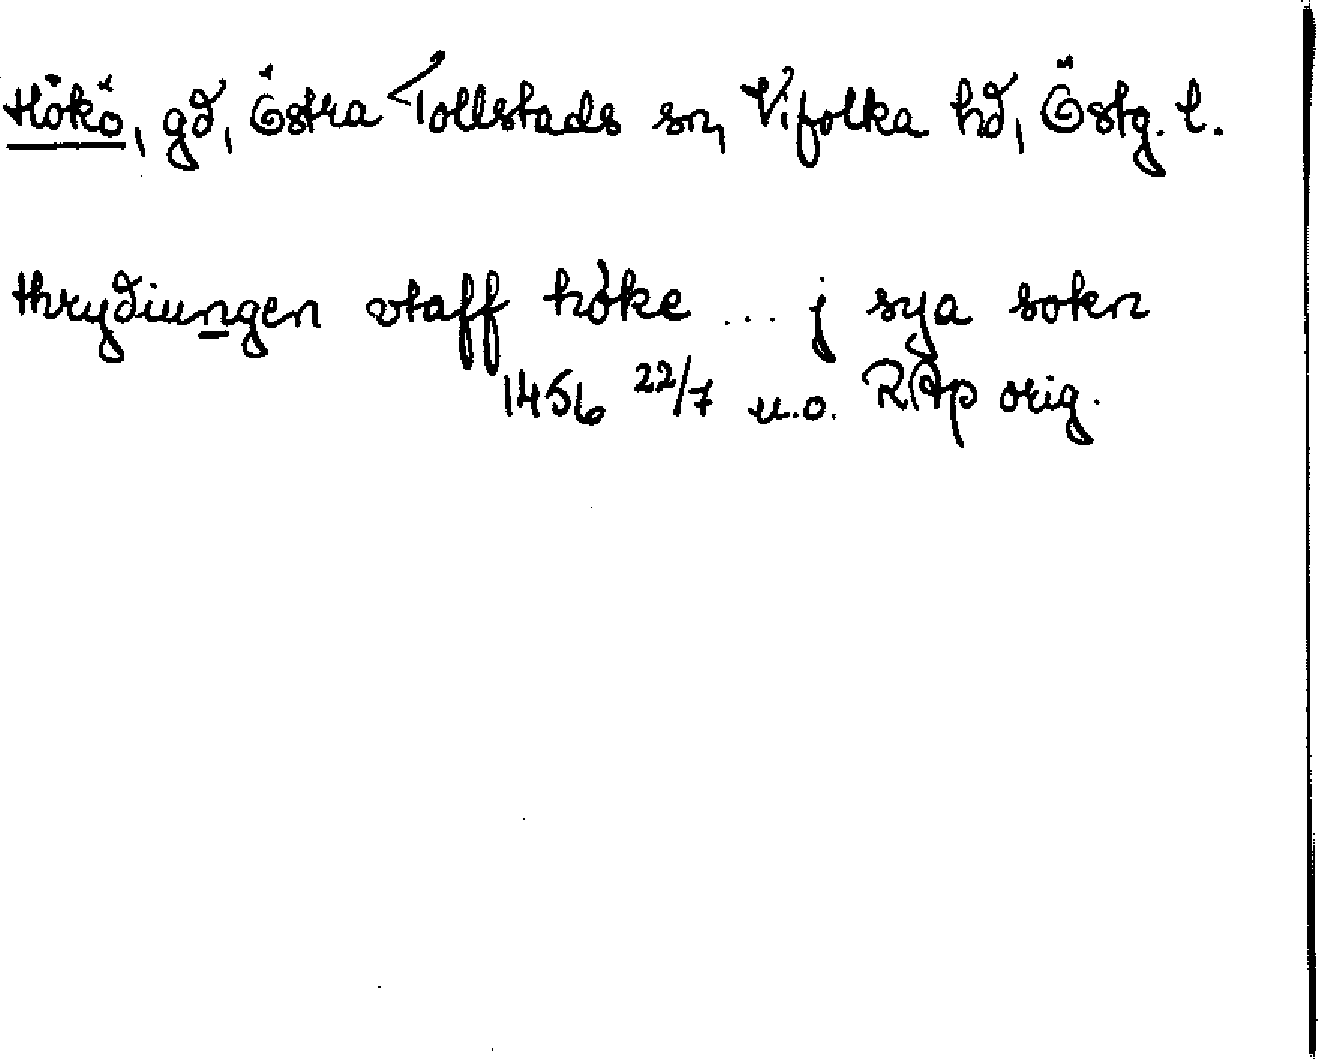 Hökö, gd, Östra Tollstads sn, Vifolka hd, Östg. l.
thrydiungen vtaff höke ... j sya sokn
1456 22/7 u.o. RAp orig.